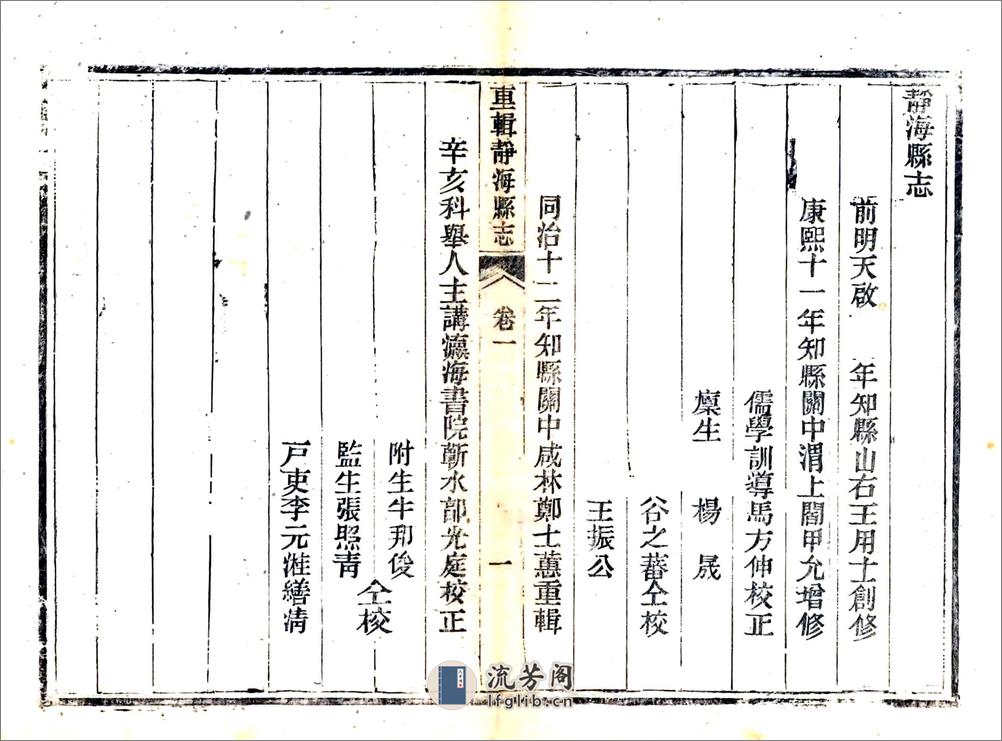 靜海縣志
前明天啟　年知縣山右王用士創修
康熙十一年知縣關中渭上閻甲允增修
儒學訓導馬方伸校正
廩生　楊　晟
谷之蕃仝校
王振公
同治十二年知縣關中咸林鄭士蕙重輯
重輯靜海縣志　卷一　一
辛亥科舉人主講瀛海書院蘄水部光庭校正
附生牛邦俊
仝校
監生張照青
戸吏李元漼繕清
流芳阁
lfglib.cn